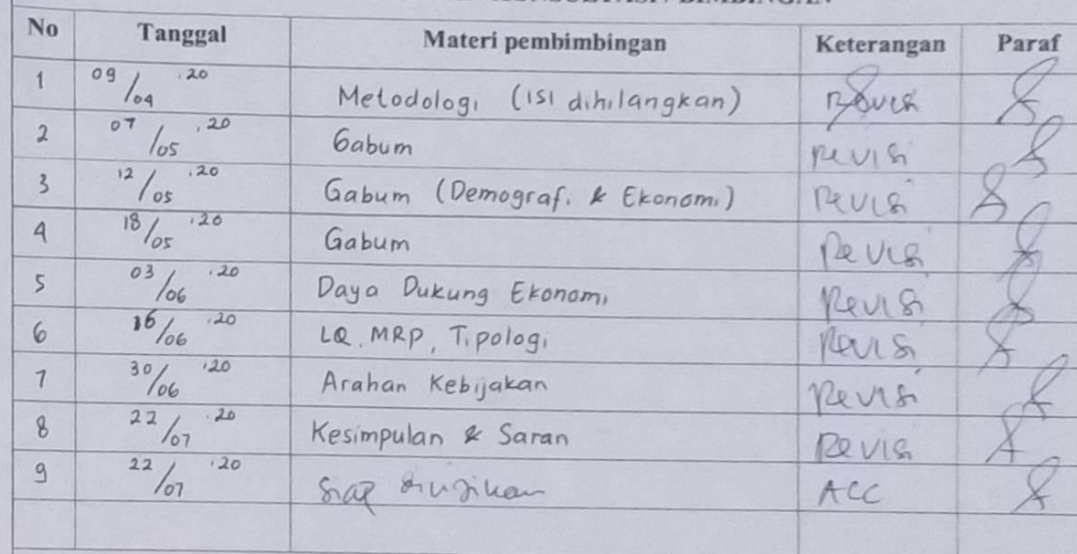 No Tanggal Materi pembimbingan Keterangan Paraf
1 09/04 .20 Metodologi (isi dihilangkan) Revisi
2 07/05 .20 Gabum Revisi
3 12/05 .20 Gabum (Demografi & Ekonomi) Revisi
4 18/05 .20 Gabum Revisi
5 03/06 .20 Daya Dukung Ekonomi Revisi
6 16/06 .20 LQ, MRP, Tipologi Revisi
7 30/06 .20 Arahan Kebijakan Revisi
8 22/07 .20 Kesimpulan & Saran Revisi
9 22/07 .20 Siap diujikan ACC